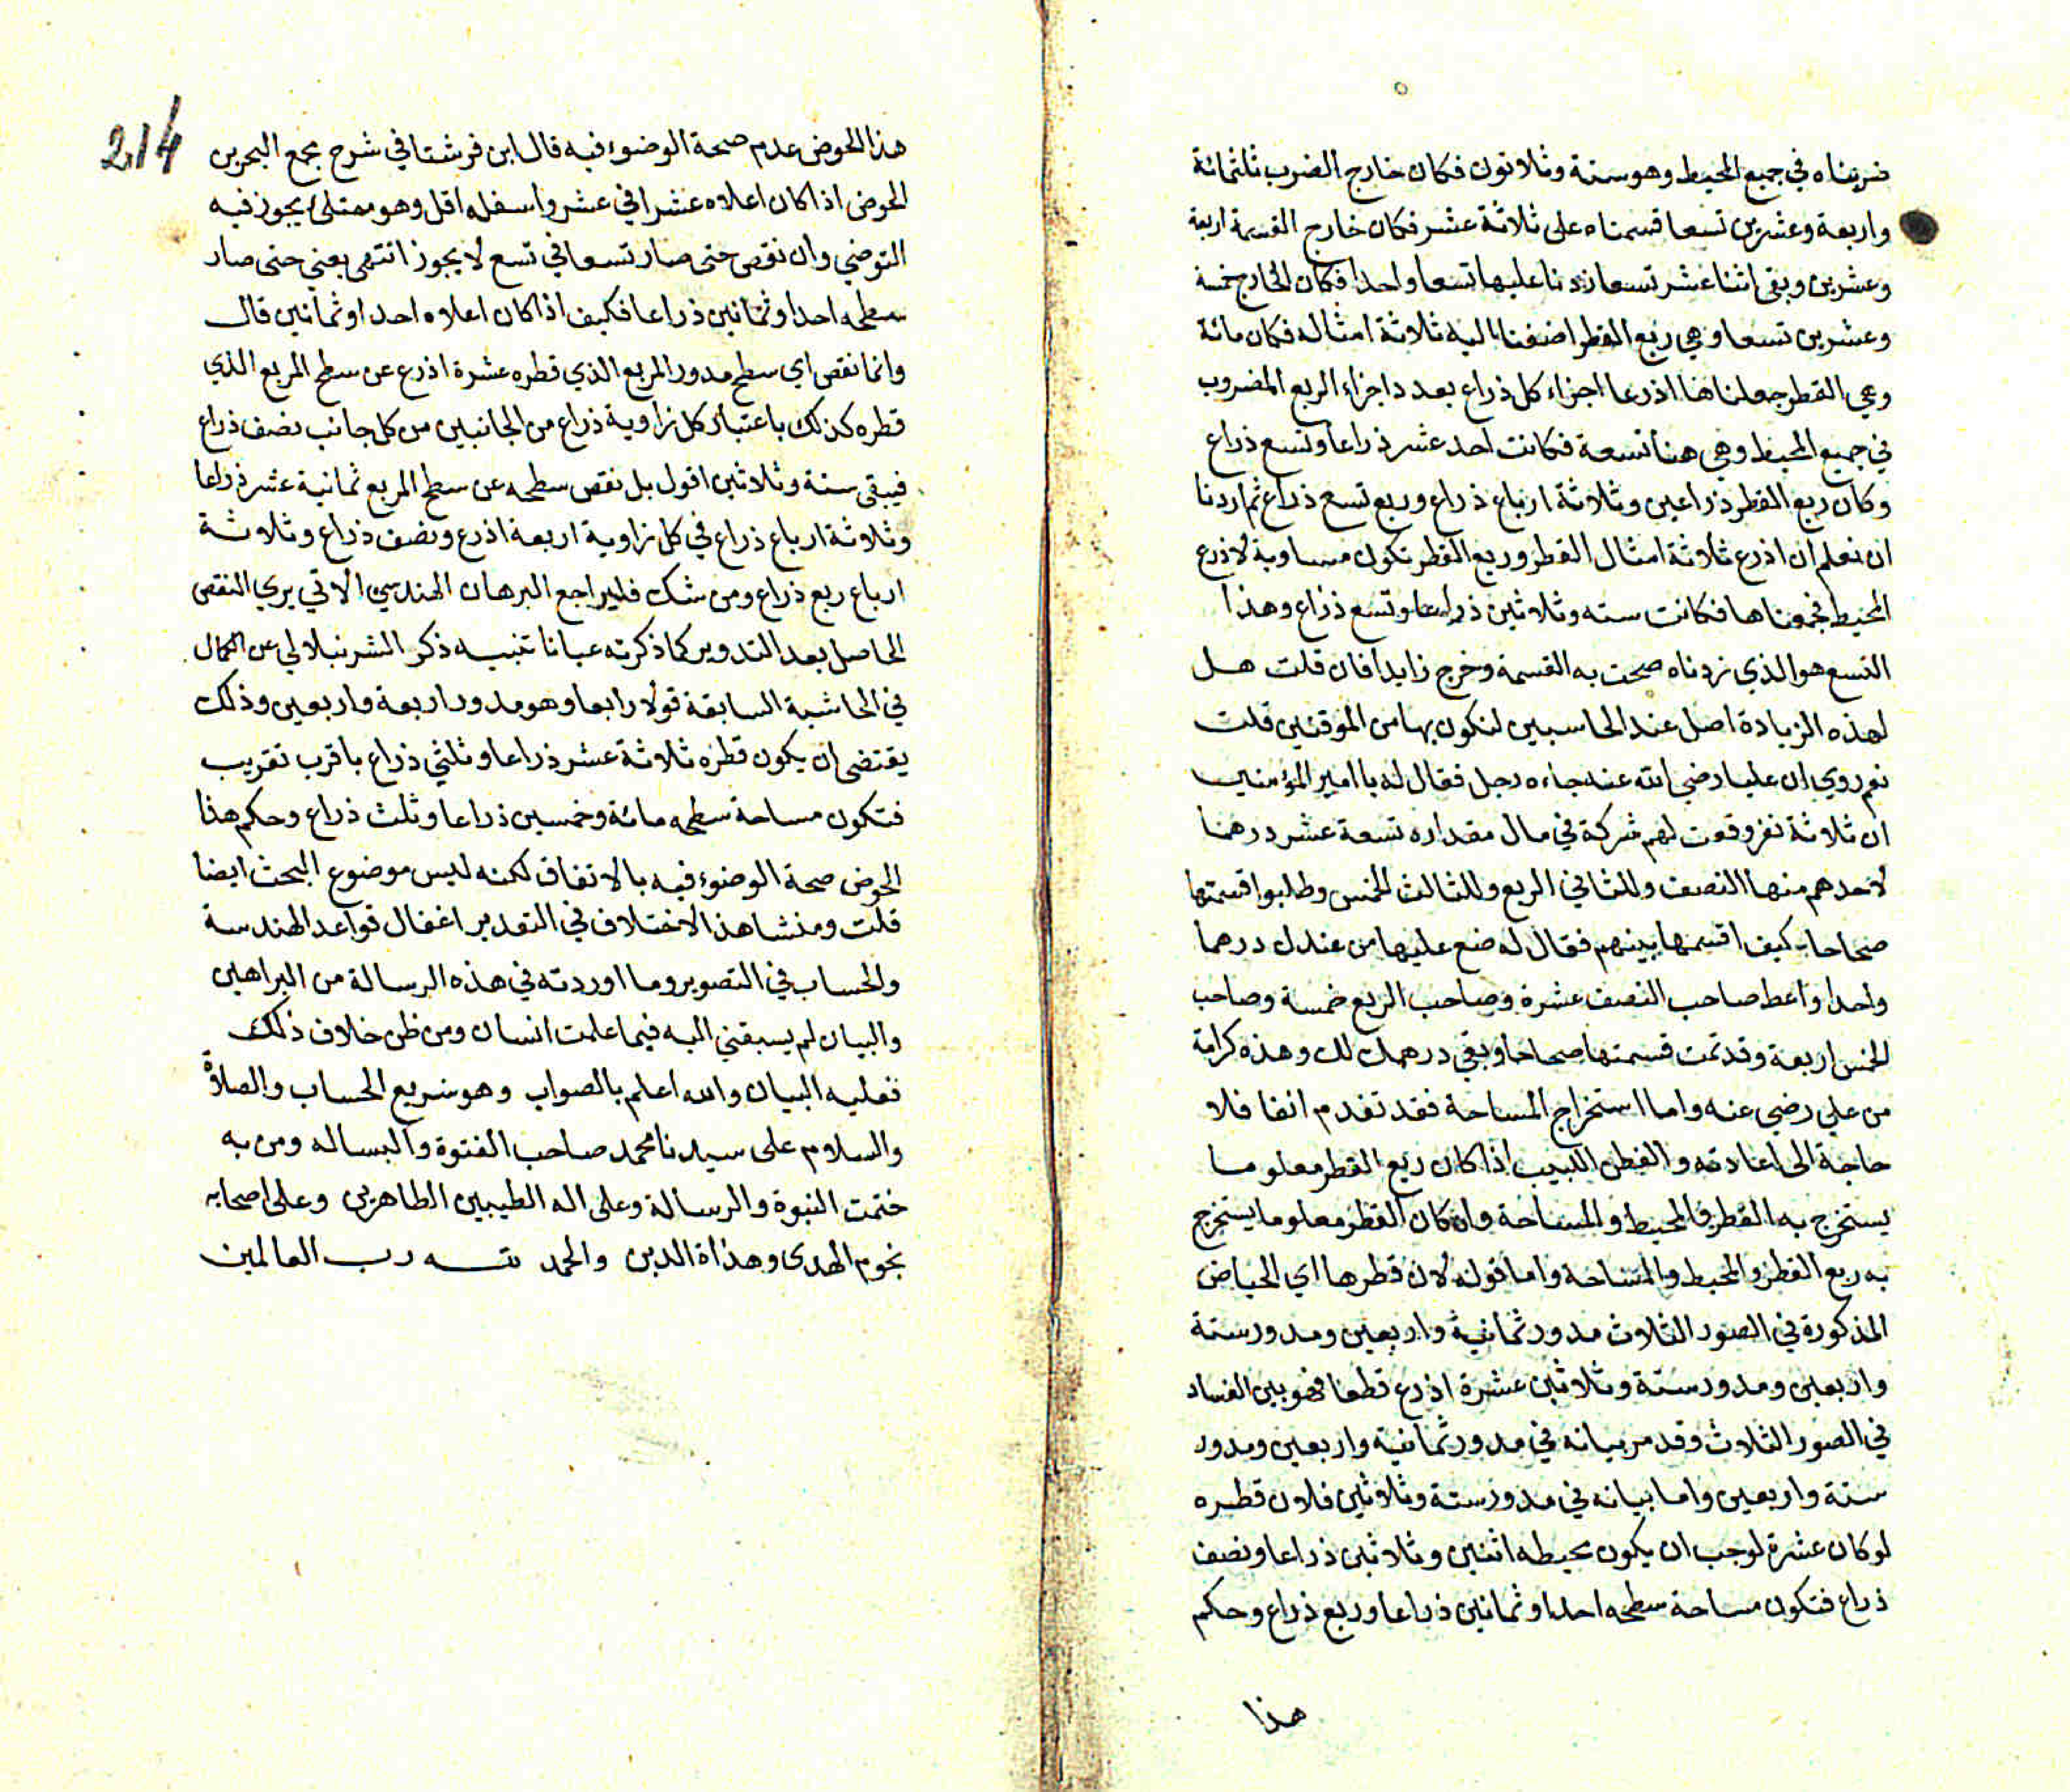 ضربناه في جميع المحيط وهو ستة وثلاثون فكان خارج الضرب ثلثمائة
واربعة وعشرين تسعا قسمناه على ثلاثة عشر فكان خارج القسمة اربعة
وعشرين وبقى اثنا عشر تسعا زدنا عليها تسعا واحدا فكان الخارج خمسة
وعشرين تسعا وهي ربع القطر اضفنا اليه ثلاثة امثاله فكان مائة
وهي القطر جعلناها اذرعا اجزاء كل ذراع بعدد اجزاء الربع المضروب
في جميع المحيط وهي هنا تسعة فكانت احد عشر ذراعا وتسع ذراع
وكان ربع القطر ذراعين وثلاثة ارباع ذراع وربع تسع ذراع ثم اردنا
ان نعلم ان اذرع ثلاثة امثال القطر وربع القطر تكون مساوية لاذرع
المحيط فجمعناها فكانت سته وثلاثين ذراعا وتسع ذراع وهذا
التسع هو الذي زدناه صحت به القسمة وخرج زايدا فان قلت هل
لهذه الزيادة اصل عند الحاسبين لنكون بها من الموقنين قلت
نعم روي ان عليا رضي الله عنه جاءه رجل فقال له يا امير المؤمنين
ان ثلاثة نفر وقعت لهم شركة في مال مقداره تسعة عشر درهما
لاحدهم منها النصف وللثاني الربع وللثالث الخمس وطلبوا قسمتها
صحاحا كيف اقسمها بينهم فقال له ضع عليها من عندك درهما
واحدا واعط صاحب النصف عشرة وصاحب الربع خمسة وصاحب
الخمس اربعة وقد تمت قسمتها صحاحا وبقي درهمك لك وهذه كرامة
من علي رضي عنه واما استخراج المساحة فقد تقدم انفا فلا
حاجة الى اعادته والفطن اللبيب اذا كان ربع القطر معلوما
يستخرج به القطر فالمحيط والمساحة وان كان القطر معلوما يستخرج
به ربع القطر والمحيط والمساحة واما قوله لان قطرها اي الحياض
المذكورة في الصور الثلاث مدور ثمانية واربعين ومدور ستة
واربعين ومدور ستة وثلاثين عشرة اذرع قطعا فهو بين الفساد
في الصور الثلاث وقد مر بيانه في مدور ثمانية واربعين ومدور
ستة واربعين واما بيانه في مدور ستة وثلاثين فلان قطره
لو كان عشرة لوجب ان يكون محيطه اثنين وثلاثين ذراعا ونصف
ذراع فتكون مساحة سطحه احدا وثمانين ذراعا وربع ذراع وحكم
هذا
214
هذا الحوض عدم صحة الوضوء فيه قال ابن فرشتا في شرح مجمع البحرين
الحوض اذا كان اعلاه عشرا في عشر واسفله اقل وهو ممتلئ يجوز فيه
التوضي وان نقص حتى صار تسعا في تسع لا يجوز انتهى يعني حتى صار
سطحه احدا وثمانين ذراعا فكيف اذا كان اعلاه احدا وثمانين قال
وانما نقص اي سطح مدور المربع الذي قطره عشرة اذرع عن سطح المربع الذي
قطره كذلك باعتبار كل زاوية ذراع من الجانبين من كل جانب نصف ذراع
فيبقى ستة وثلاثين اقول بل نقص سطحه عن سطح المربع ثمانية عشر ذراعا
وثلاثة ارباع ذراع في كل زاوية اربعة اذرع ونصف ذراع وثلاثة
ارباع ربع ذراع ومن شك فليراجع البرهان الهندسي الاتي يري النقص
الحاصل بعد التدوير كما ذكرته عيانا تنبيه ذكر الشرنبلالي عن الكمال
في الحاشية السابقة قولا رابعا وهو مدور اربعة واربعين وذلك
يقتضى ان يكون قطره ثلاثة عشر ذراعا وثلثي ذراع باقرب تقريب
فتكون مساحة سطحه مائة وخمسين ذراعا وثلث ذراع وحكم هذا
الحوض صحة الوضوء فيه بالاتفاق لكنه ليس موضوع البحث ايضا
قلت ومنشا هذا الاختلاف في التقدير اغفال قواعد الهندسة
والحساب في التصوير وما اوردته في هذه الرسالة من البراهين
والبيان لم يسبقني اليه فيما علمت انسان ومن ظن خلاف ذلك
فعليه البيان والله اعلم بالصواب وهو سريع الحساب والصلاة
والسلام على سيدنا محمد صاحب الفتوة والبساله ومن به
ختمت النبوة والرسالة وعلى اله الطيبين الطاهرين وعلى اصحابه
نجوم الهدى وهداة الدين والحمد لله رب العالمين